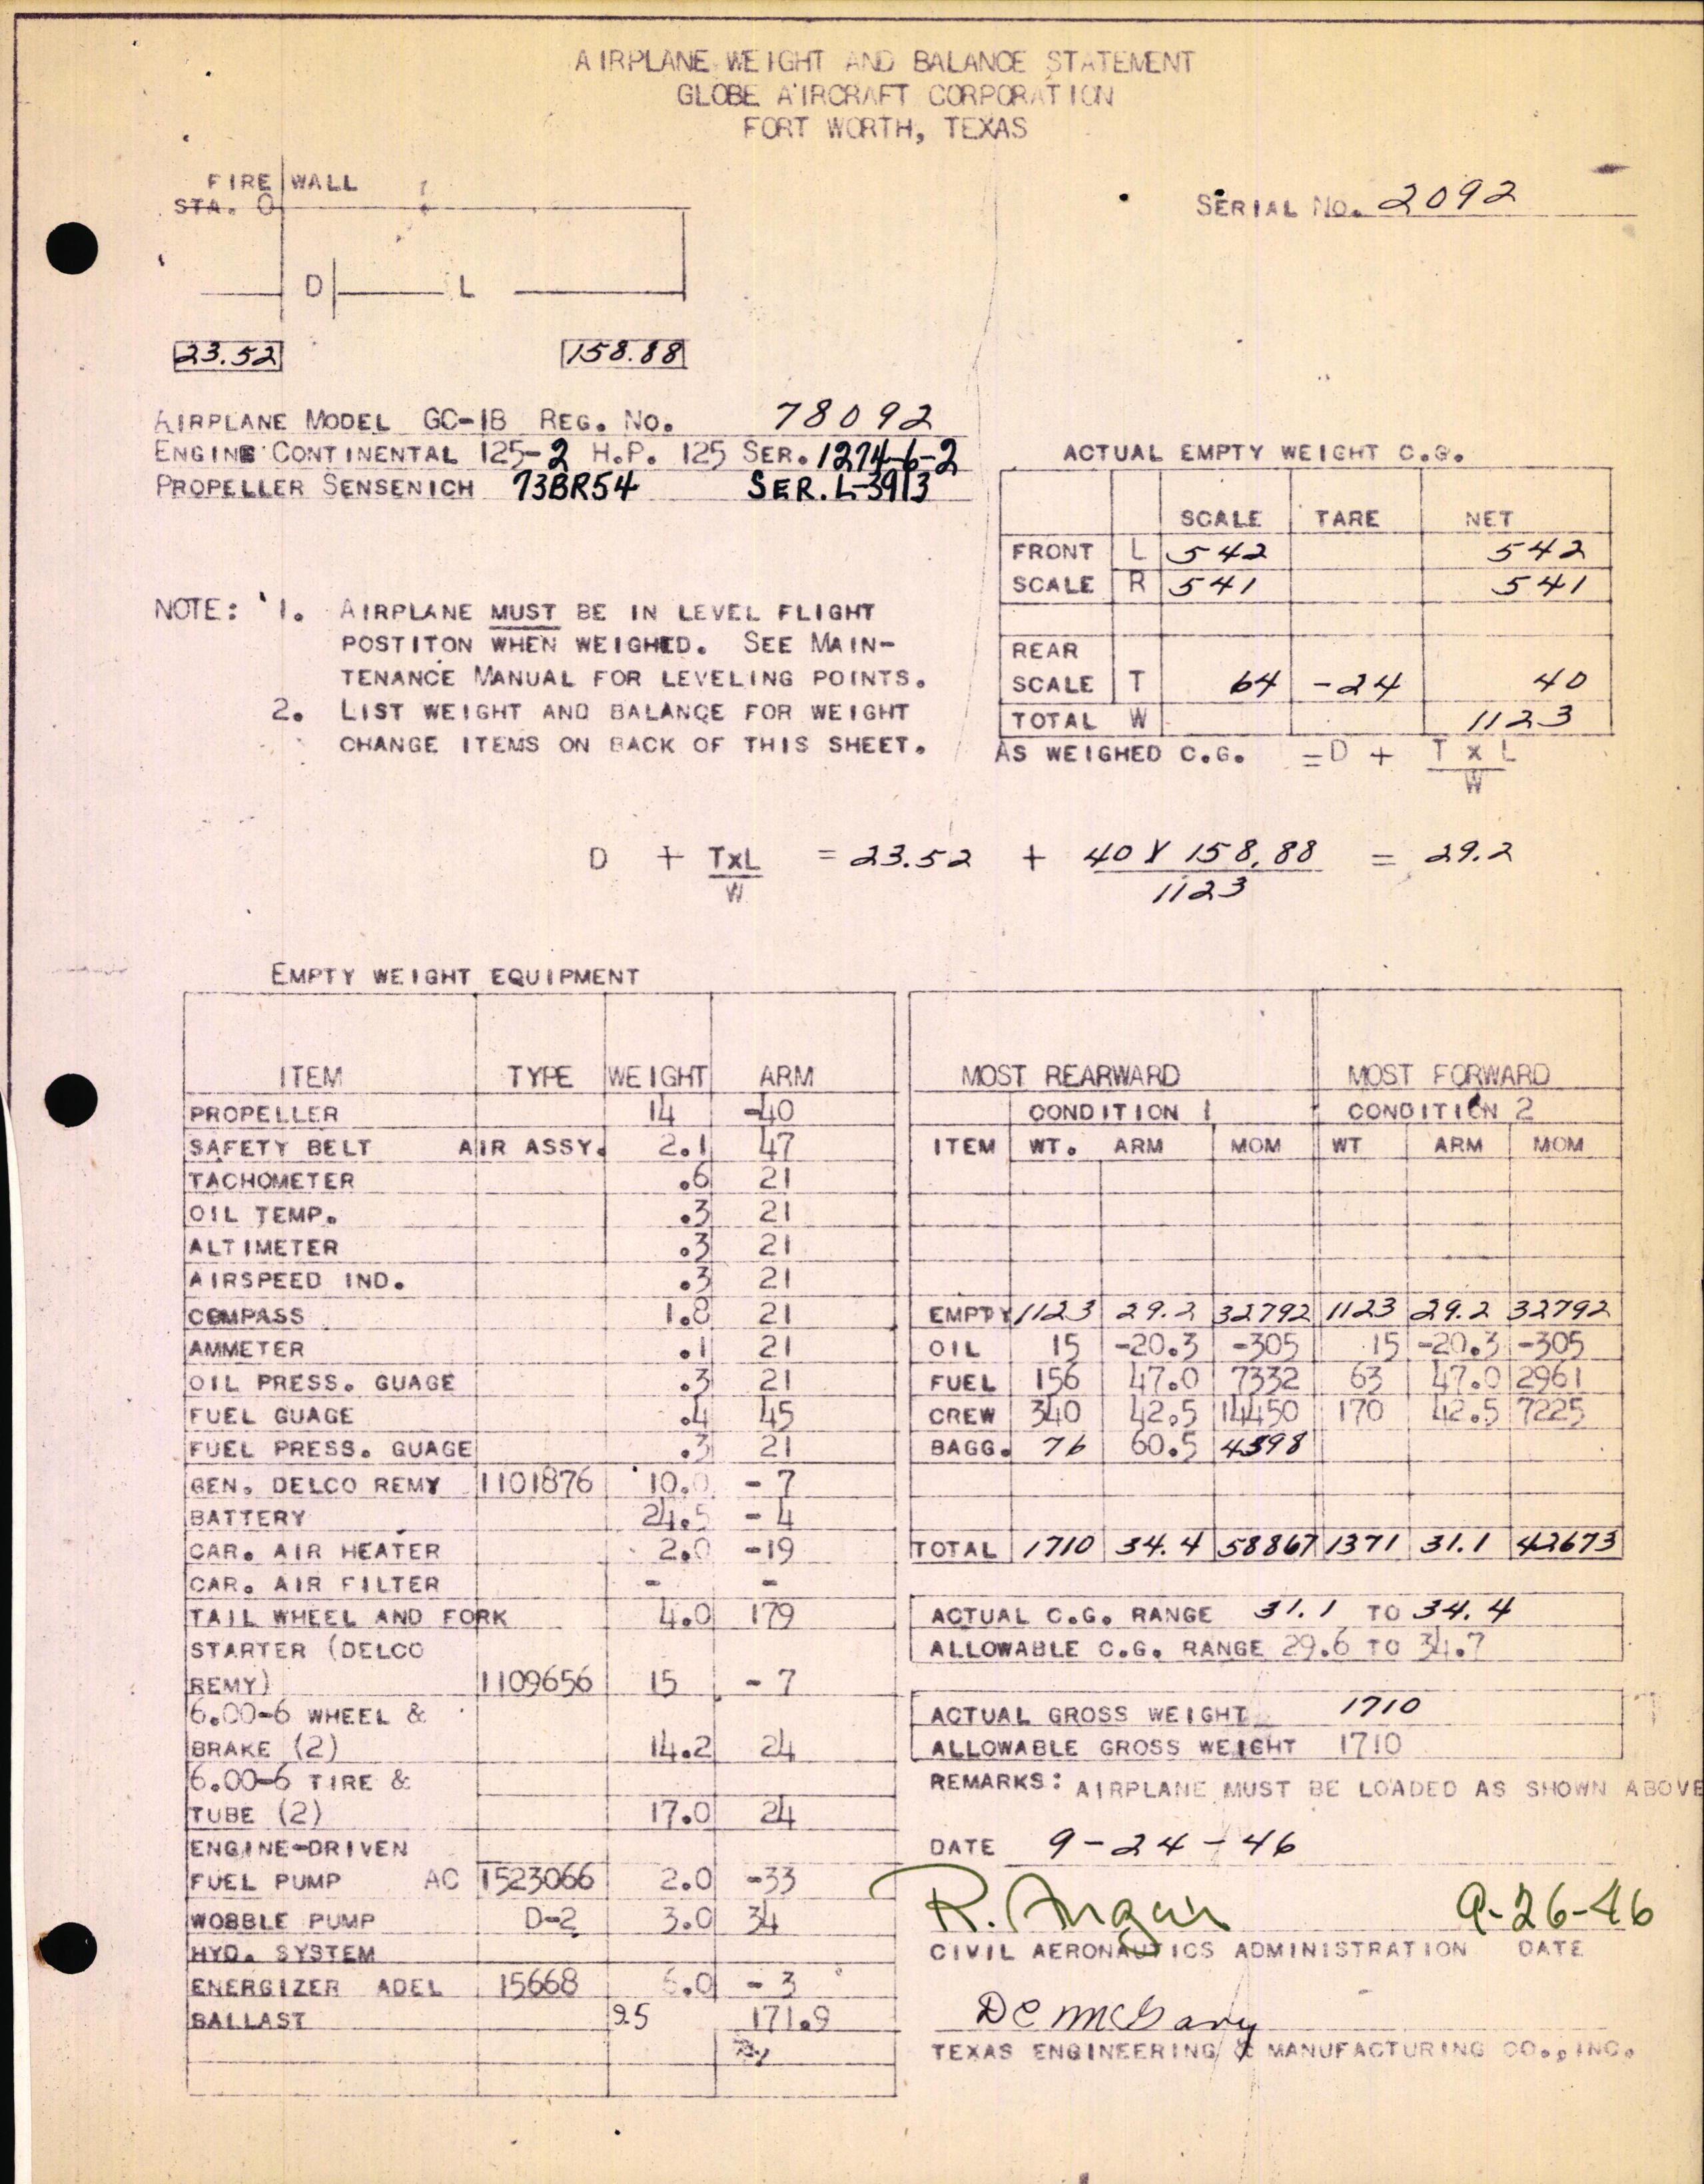 AIRPLANE WEIGHT AND BALANCE STATEMENT
GLOBE AIRCRAFT CORPORATION
FORT WORTH, TEXAS
FIRE WALL
STA. 0
SERIAL NO. 2092
D L
23.52 158.88
AIRPLANE MODEL GC-1B REG. NO. 78092
ENGINE CONTINENTAL 125-2 H.P. 125 SER. 1274-6-2
PROPELLER SENSENICH 73BR54 SER. L-3913
ACTUAL EMPTY WEIGHT C.G.
SCALE TARE NET
FRONT L 542 542
SCALE R 541 541
REAR
SCALE T 64 -24 40
TOTAL W 1123
AS WEIGHED C.G. =D + T x L
W
NOTE: 1. AIRPLANE MUST BE IN LEVEL FLIGHT
POSTITON WHEN WEIGHED. SEE MAIN-
TENANCE MANUAL FOR LEVELING POINTS.
2. LIST WEIGHT AND BALANCE FOR WEIGHT
CHANGE ITEMS ON BACK OF THIS SHEET.
D + TxL = 23.52 + 40 X 158.88 = 29.2
W 1123
EMPTY WEIGHT EQUIPMENT
ITEM TYPE WEIGHT ARM
PROPELLER 14 -40
SAFETY BELT AIR ASSY. 2.1 47
TACHOMETER .6 21
OIL TEMP. .3 21
ALTIMETER .3 21
AIRSPEED IND. .3 21
COMPASS 1.8 21
AMMETER .1 21
OIL PRESS. GUAGE .3 21
FUEL GUAGE .4 45
FUEL PRESS. GUAGE .3 21
GEN. DELCO REMY 1101876 10.0 - 7
BATTERY 24.5 - 4
CAR. AIR HEATER 2.0 -19
CAR. AIR FILTER - -
TAIL WHEEL AND FORK 4.0 179
STARTER (DELCO
REMY) 1109656 15 - 7
6.00-6 WHEEL &
BRAKE (2) 14.2 24
6.00-6 TIRE &
TUBE (2) 17.0 24
ENGINE-DRIVEN
FUEL PUMP AC 1523066 2.0 -33
WOBBLE PUMP D-2 3.0 34
HYD. SYSTEM
ENERGIZER ADEL 15668 6.0 - 3
BALLAST 25 171.9
MOST REARWARD MOST FORWARD
CONDITION 1 CONDITION 2
ITEM WT. ARM MOM WT ARM MOM
EMPTY 1123 29.2 32792 1123 29.2 32792
OIL 15 -20.3 -305 15 -20.3 -305
FUEL 156 47.0 7332 63 47.0 2961
CREW 340 42.5 14450 170 42.5 7225
BAGG. 76 60.5 4598
TOTAL 1710 34.4 58867 1371 31.1 42673
ACTUAL C.G. RANGE 31.1 TO 34.4
ALLOWABLE C.G. RANGE 29.6 TO 34.7
ACTUAL GROSS WEIGHT 1710
ALLOWABLE GROSS WEIGHT 1710
REMARKS: AIRPLANE MUST BE LOADED AS SHOWN ABOVE
DATE 9-24-46
R. 9-26-46
CIVIL AERONAUTICS ADMINISTRATION DATE
TEXAS ENGINEERING & MANUFACTURING CO., INC.